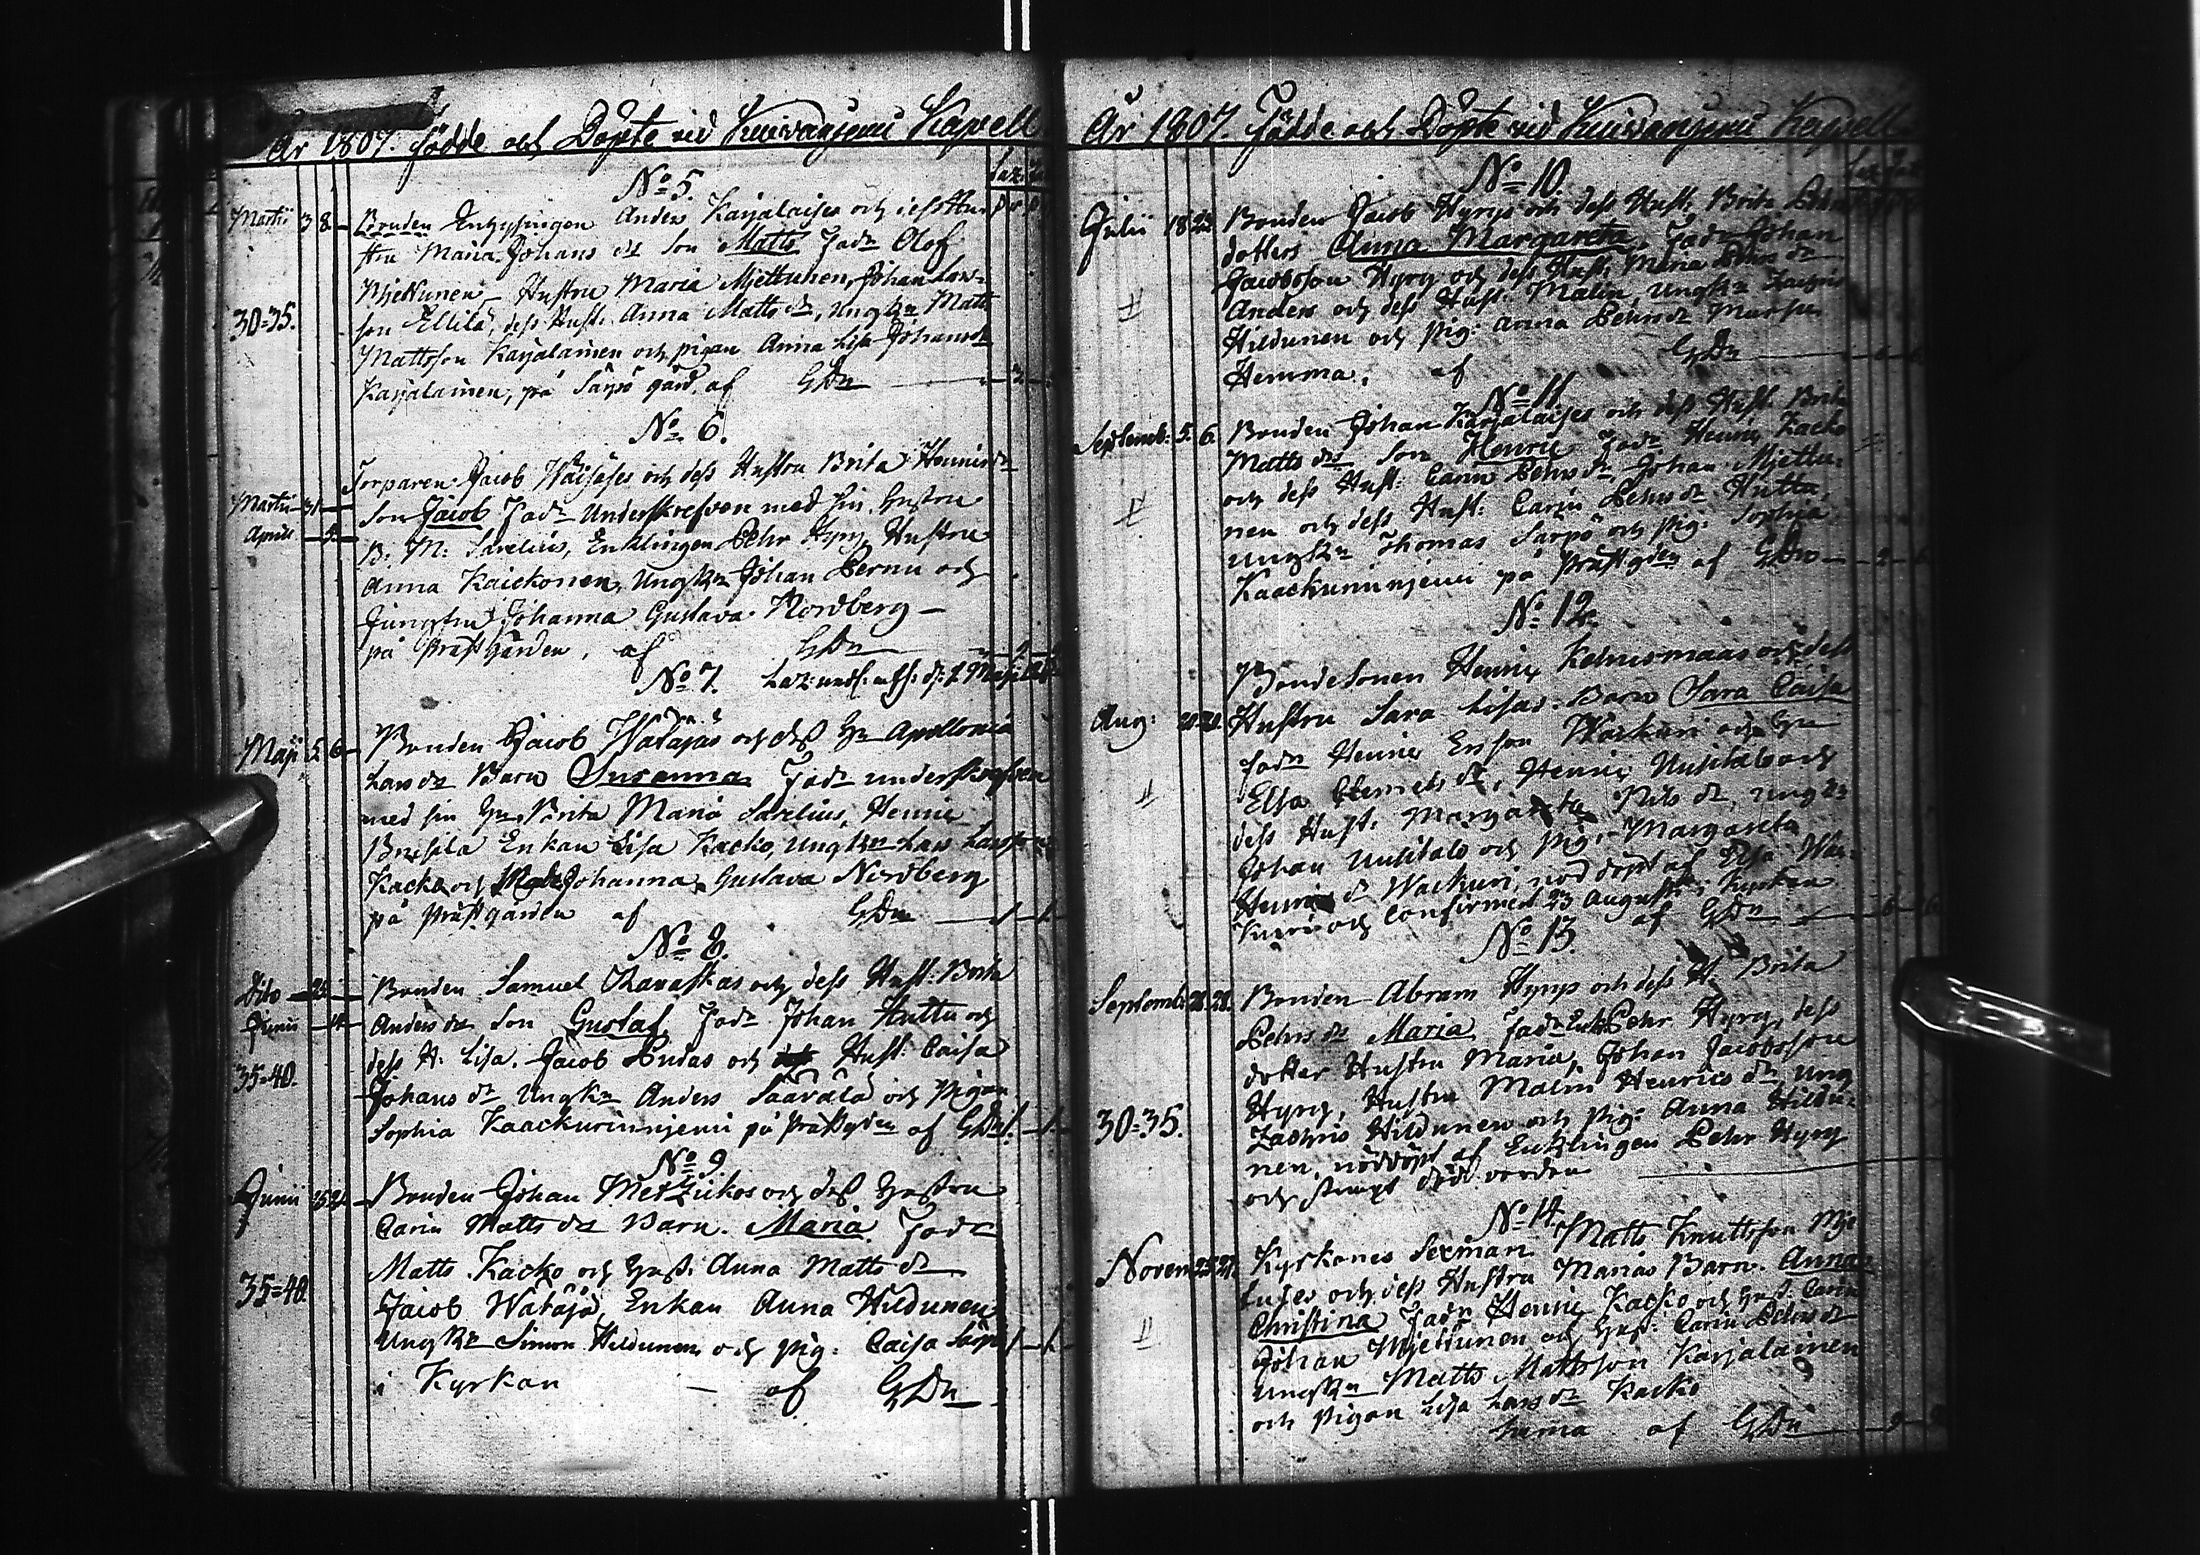 År 1807. Födde och Döpte vid Kuivaniemi Kapell
No 5.
Martii 3 8 Bonden Anders Karjalaises och dess Hu-
stru Maria Johans dr Son Matts Fadr Olof
Mjettunen Hustru Maria Mjettunen, Johan Lars-
30=35. son Ellilä, dess Hust. Anna Matts dr, Ungkn Matts
Mattsson Karjalainen och pigan Anna Lisa Johansdr
Karjalainen, på Särpö gård, af GDn
No 6.
Torparen Jacob Wäisäses och dess Hustru Brita Henricsdr
Martii 31 Son Jacob Fadr Underskrefven med sin hustru
Aprill B: M: Sarelius, Enklingen Pehr Hyry, Hustru
Anna Kaickonen, Ungkn Johan Pernu och
Jungfru Johanna Gustava Nordberg
på Prästgården, af GDn
No 7.
Maji 5 6 Bonden Jacob Watajas och dess H Apollonia
Lars dr Barn Susanna Fadr underskrefven
med sin H Brita Maria Sarelius, Henric
Enkan Lisa Kacko, Ungkn Lars Larsson
Kacko och Johanna Gustava Nordberg
på prästgården af GDn
No 8.
Dito 25 Bonden Samuel dess Hust: Brita
Junii Anders dr Son Gustaf Fadr Johan Huttu och
dess H: Lisa. Jacob Pudas och Hust: Caisa
35=40. Johans dr Ungkn Anders Säävälä och Pigan
Sophia Kaackurinnjemi på Prästgden af GDn
No 9.
Junii Bonden Johan och dess Hustru
Carin Matts dr Barn. Maria Fadr
Matts Kacko och Hust. Anna Matts dr
35=40. Jacob Watäjä, Enkan Anna Hildunen
Ungkn Simon Hildunen och pig: Caisa Särpö
i Kyrkan af GDn
År 1807. Födde och Döpte vid Kuivaniemi Kapell
No 10.
Julii 18 Bonden Jacob Hyrys och dess Hust. Brita Pehrs
dotters Anna Margareta, Fadr Johan
Jacobsson Hyry och dess Hust: Maria Pehrs dr
Anders och dess Hust: Malin, Ungkn Zachris
Hildunen och Pig: Anna Pehrsdr
Hemma, af GDn
No 11.
Septemb: 5. 6. Bonden Johan Karjalaises och dess Hust Brita
Matts drs Son Henric Fadr Henric Kacko
och dess Hust: Carin Pehrs dr Johan Mjettu-
nen och dess Hust: Carin Pehrs dr Huttu,
Ungkn Thomas Särpö och Pig: Sophia
Kaackurinnjemi på Prästgden af GDn
No 12.
Bondesonen Henric Kolmismaas och dess
Aug: Hustru Sara Lisas Barn Sara Caisa
Fadr Henric Ersson Wackuri och H
Elsa dr, Henric Uusitalo och
dess Hust. Margareta Nils dr, Ungkn
Johan Uusitalo och Pig: Margareta
Henric dr Wackuri, nöd döpt af Elsa Wac-
kuri och Confirmerd 23 Augusti i Kyrkan
af GDn
No 13.
Septemb: 28. 28. Bonden Abram Hyrys och dess H Brita
Pehrs drs Maria Fadr Pehr Hyry, dess
dotter Hustru Maria, Johan Jacobsson
Hyry, Hustru Malin Henrics dr Ung
30=35. Zachris Hildunen och Pig: Anna Hildu-
nen, nöddöpt af Enklingen Pehr Hyry
och strax död vorden
No 14.
Novem Kyrkones Sexman Matts Knuttsson Mje-
tuses och dess Hustru Marias Barn. Anna
Christina Fadr Henric Kacko och Hust. Carin
Johan Mjettunen och Hust: Carin Pehrs dr
Ungkn Matts Mattsson Karjalainen
och Pigan Lisa Lars dr Kacko
hema af GDn